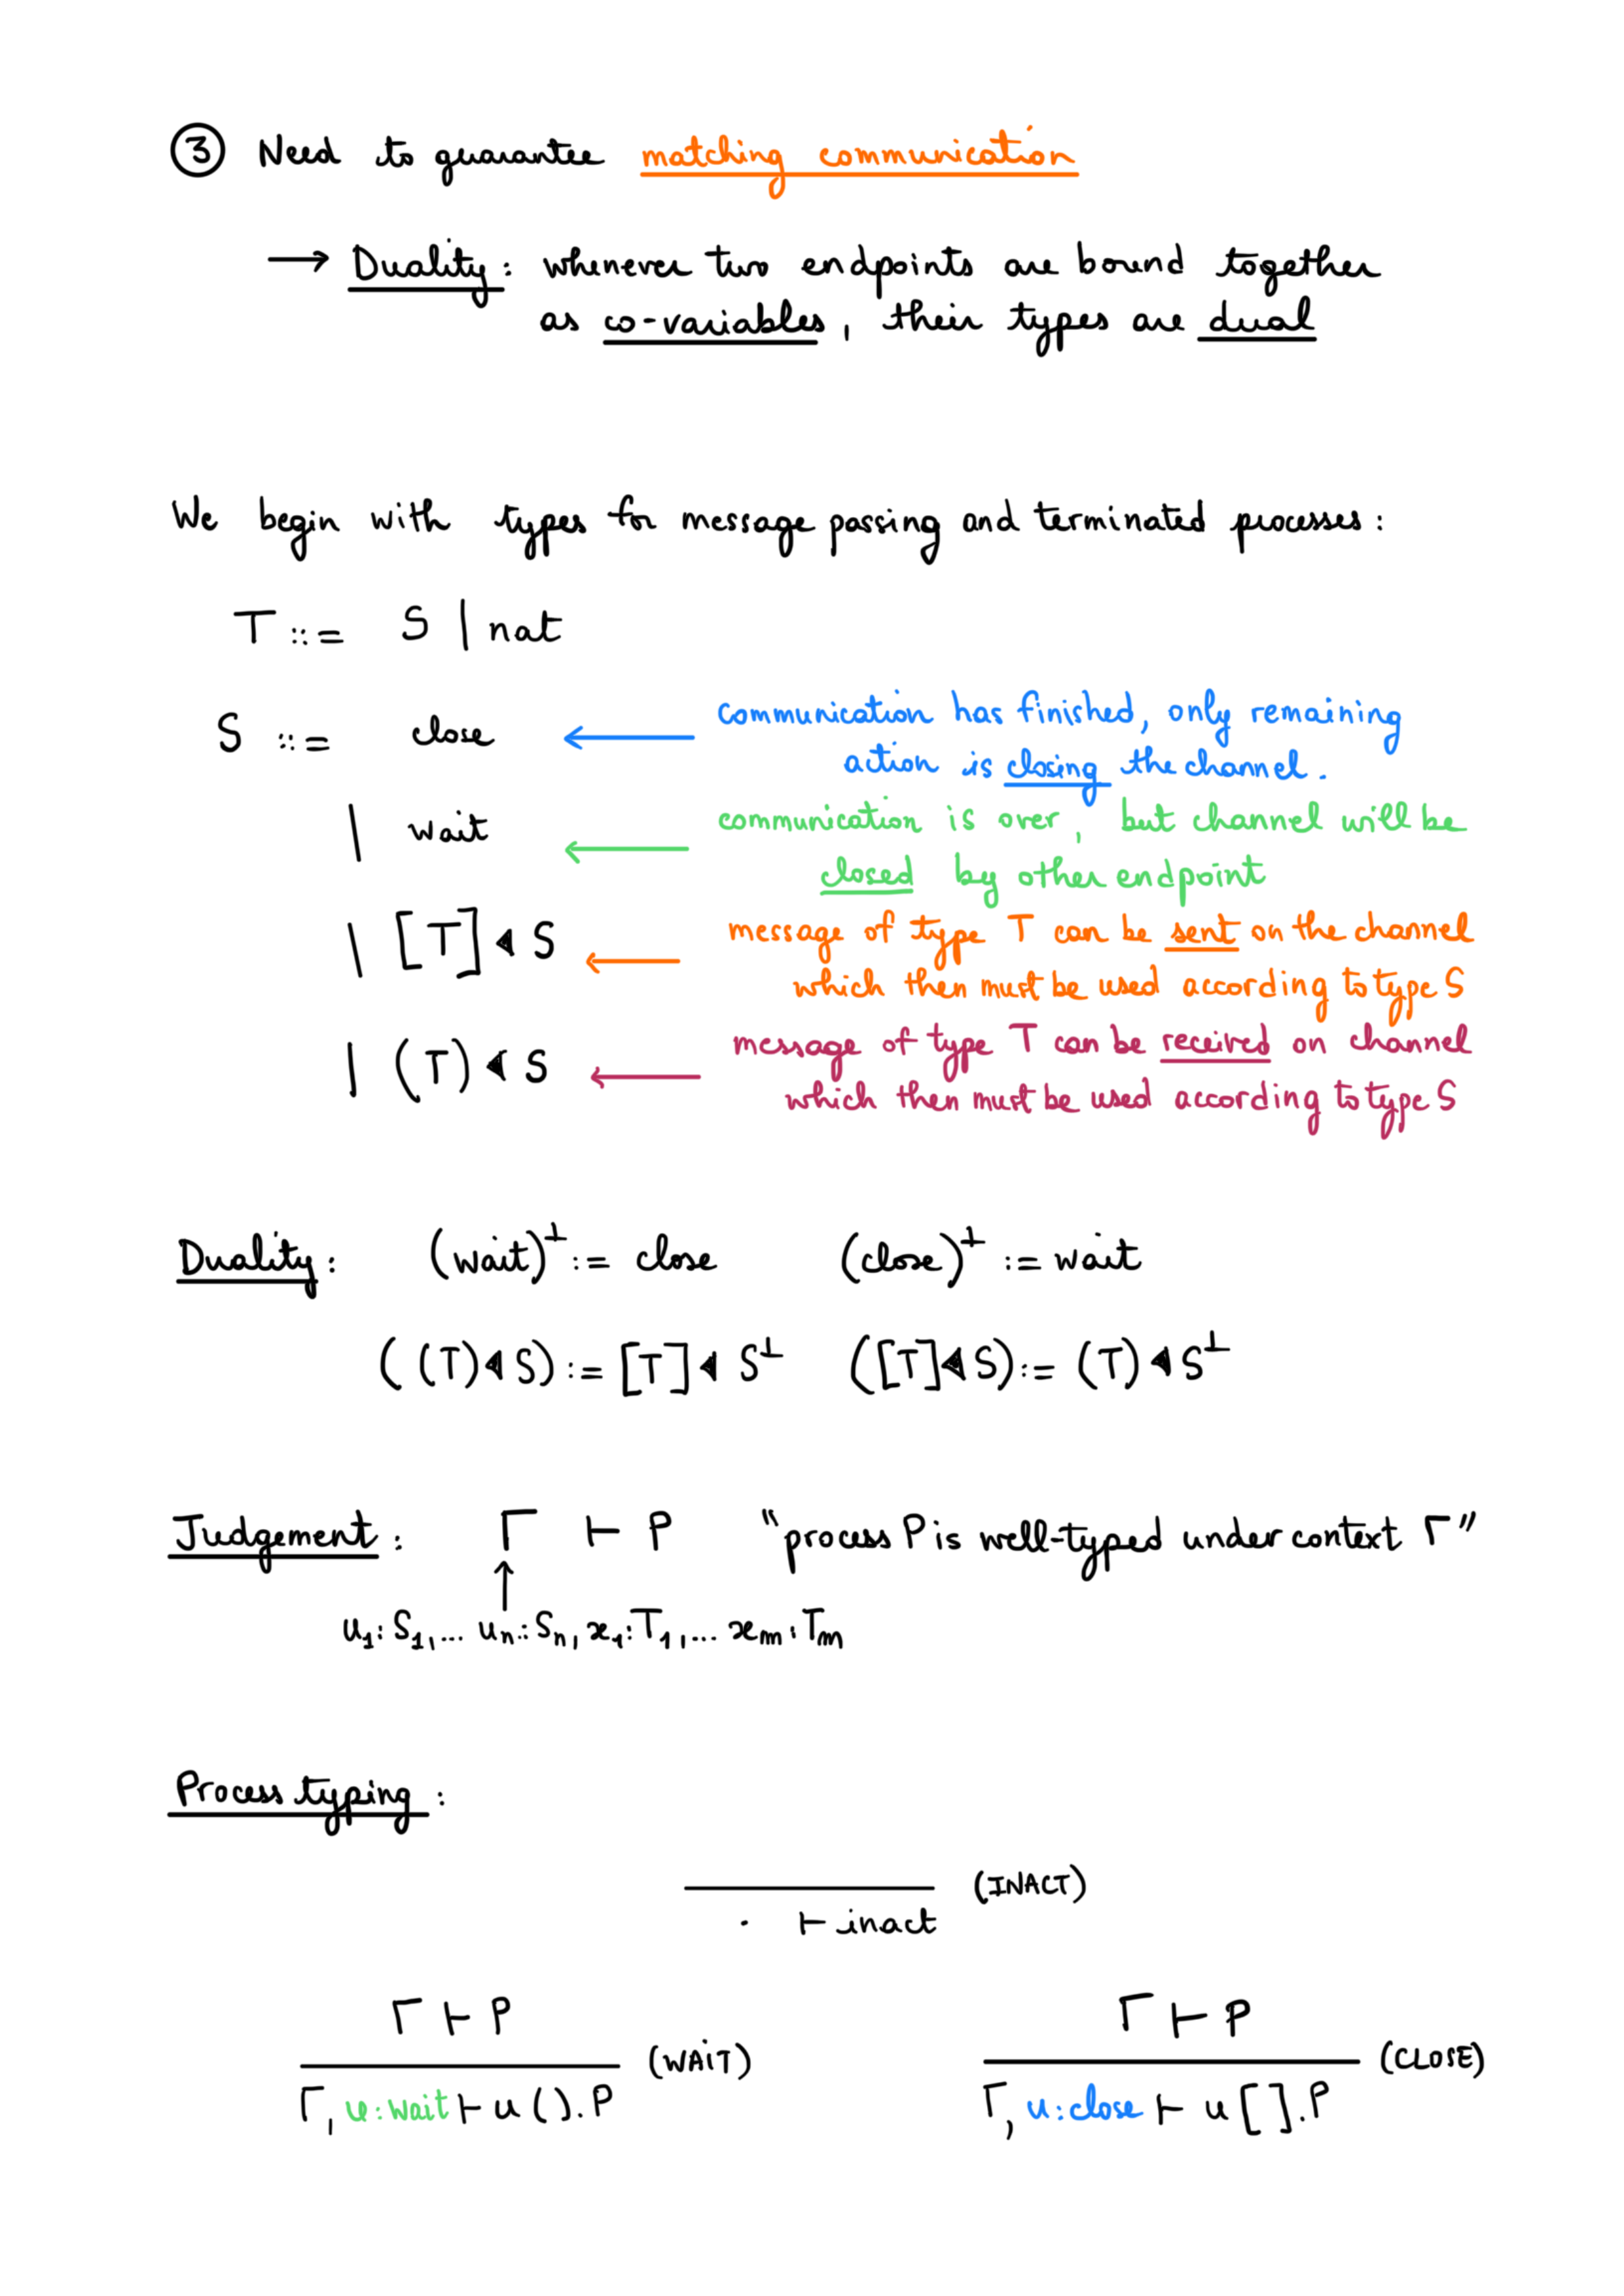 ③ Need to guarantee matching communication
→ Duality: whenever two endpoints are bound together
as co-variables, their types are dual
We begin with types for message passing and terminated processes:
T ::= S | nat
S ::= close ← communication has finished, only remaining
action is closing the channel.
| wait ← communication is over, but channel will be
closed by other endpoint
| [T] ◀ S ← message of type T can be sent on the channel
which then must be used according to type S
| (T) ◀ S ← message of type T can be received on channel
which then must be used according to type S
Duality: (wait)⊥ := close (close)⊥ := wait
((T) ◀ S) := [T] ◀ S⊥ ([T] ◀ S) := (T) ◀ S⊥
Judgement: Γ ⊢ P "process P is well-typed under context Γ"
↑
u₁:S₁,... uₙ:Sₙ, x₁:T₁,... xₘ:Tₘ
Process typing:
(INACT)
· ⊢ inact
Γ ⊢ P Γ ⊢ P
(WAIT) (CLOSE)
Γ, u:wait ⊢ u().P Γ, u:close ⊢ u[].P